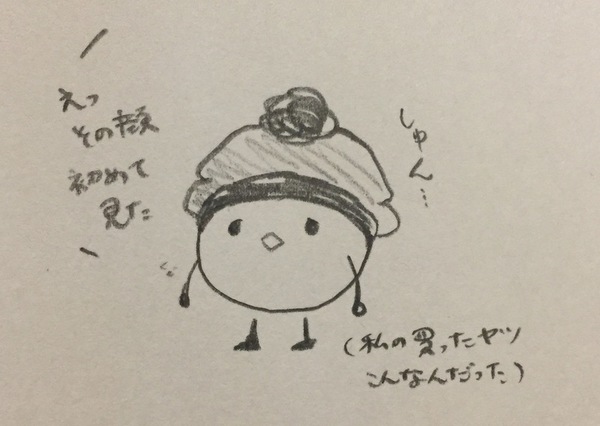 えっ
その顔
初めて
見た
しゅん…
(私の買ったヤツ
こんなんだった)